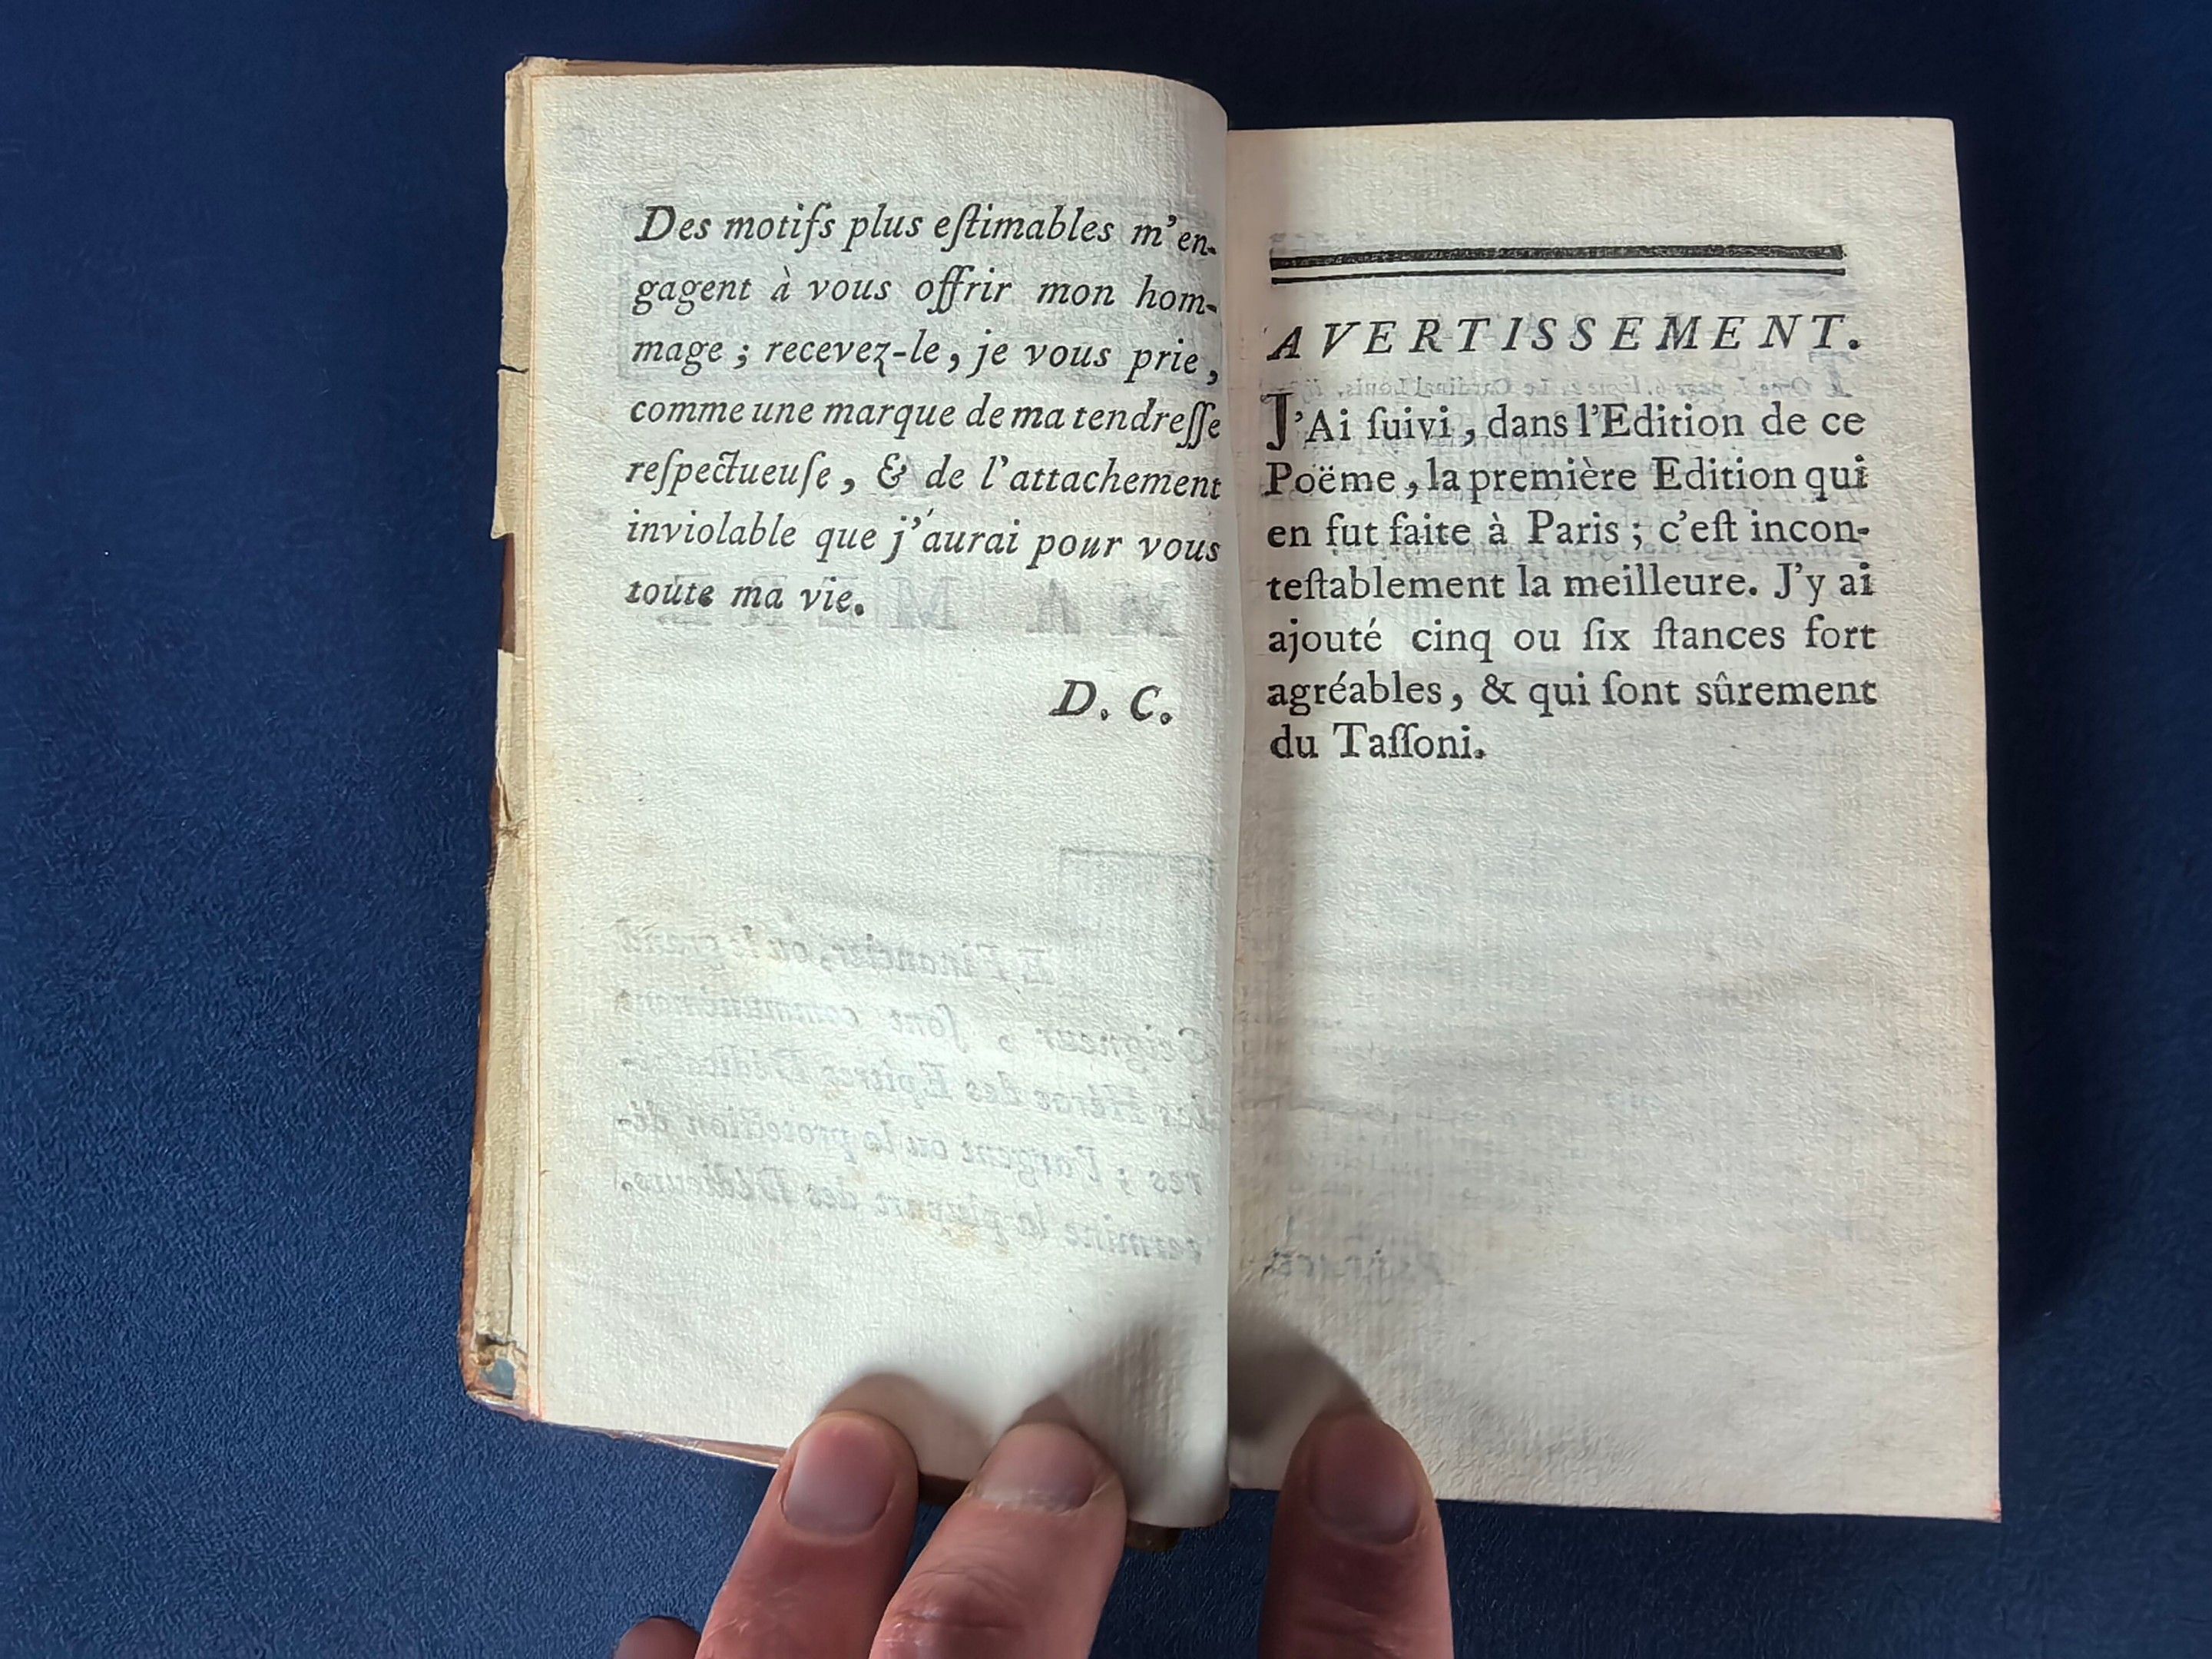 Des motifs plus eſtimables m'en-
gagent à vous offrir mon hom-
mage ; recevez-le, je vous prie,
comme une marque de ma tendreſſe
reſpectueuſe, & de l'attachement
inviolable que j'aurai pour vous
toute ma vie.
D. C.
AVERTISSEMENT.
J'Ai ſuivi, dans l'Edition de ce
Poëme, la première Edition qui
en fut faite à Paris ; c'eſt incon-
teſtablement la meilleure. J'y ai
ajouté cinq ou ſix ſtances fort
agréables, & qui ſont sûrement
du Taſſoni.